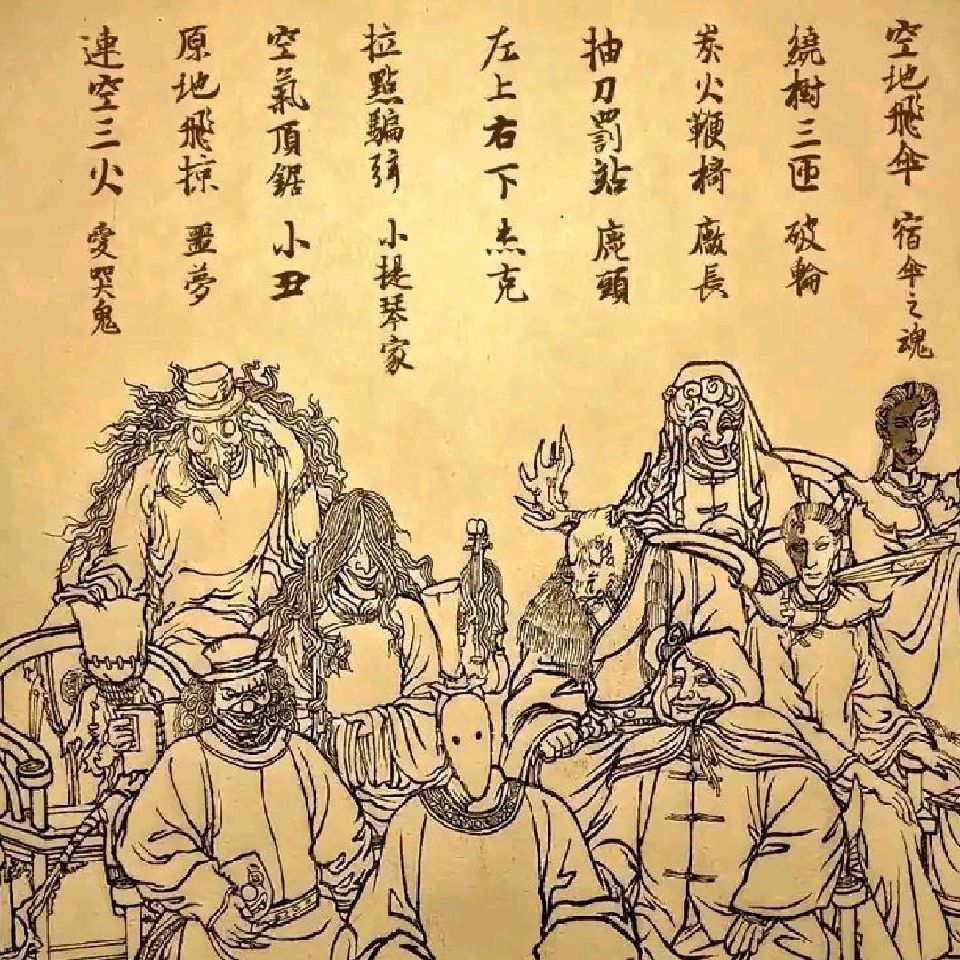 空地飛傘 宿傘之魂
繞樹三匝 破輪
炭火鞭椅 廠長
抽刀罰站 鹿頭
左上右下 杰克
拉點騙弦 小提琴家
空氣頂鋸 小丑
原地飛掠 噩夢
連空三火 愛哭鬼